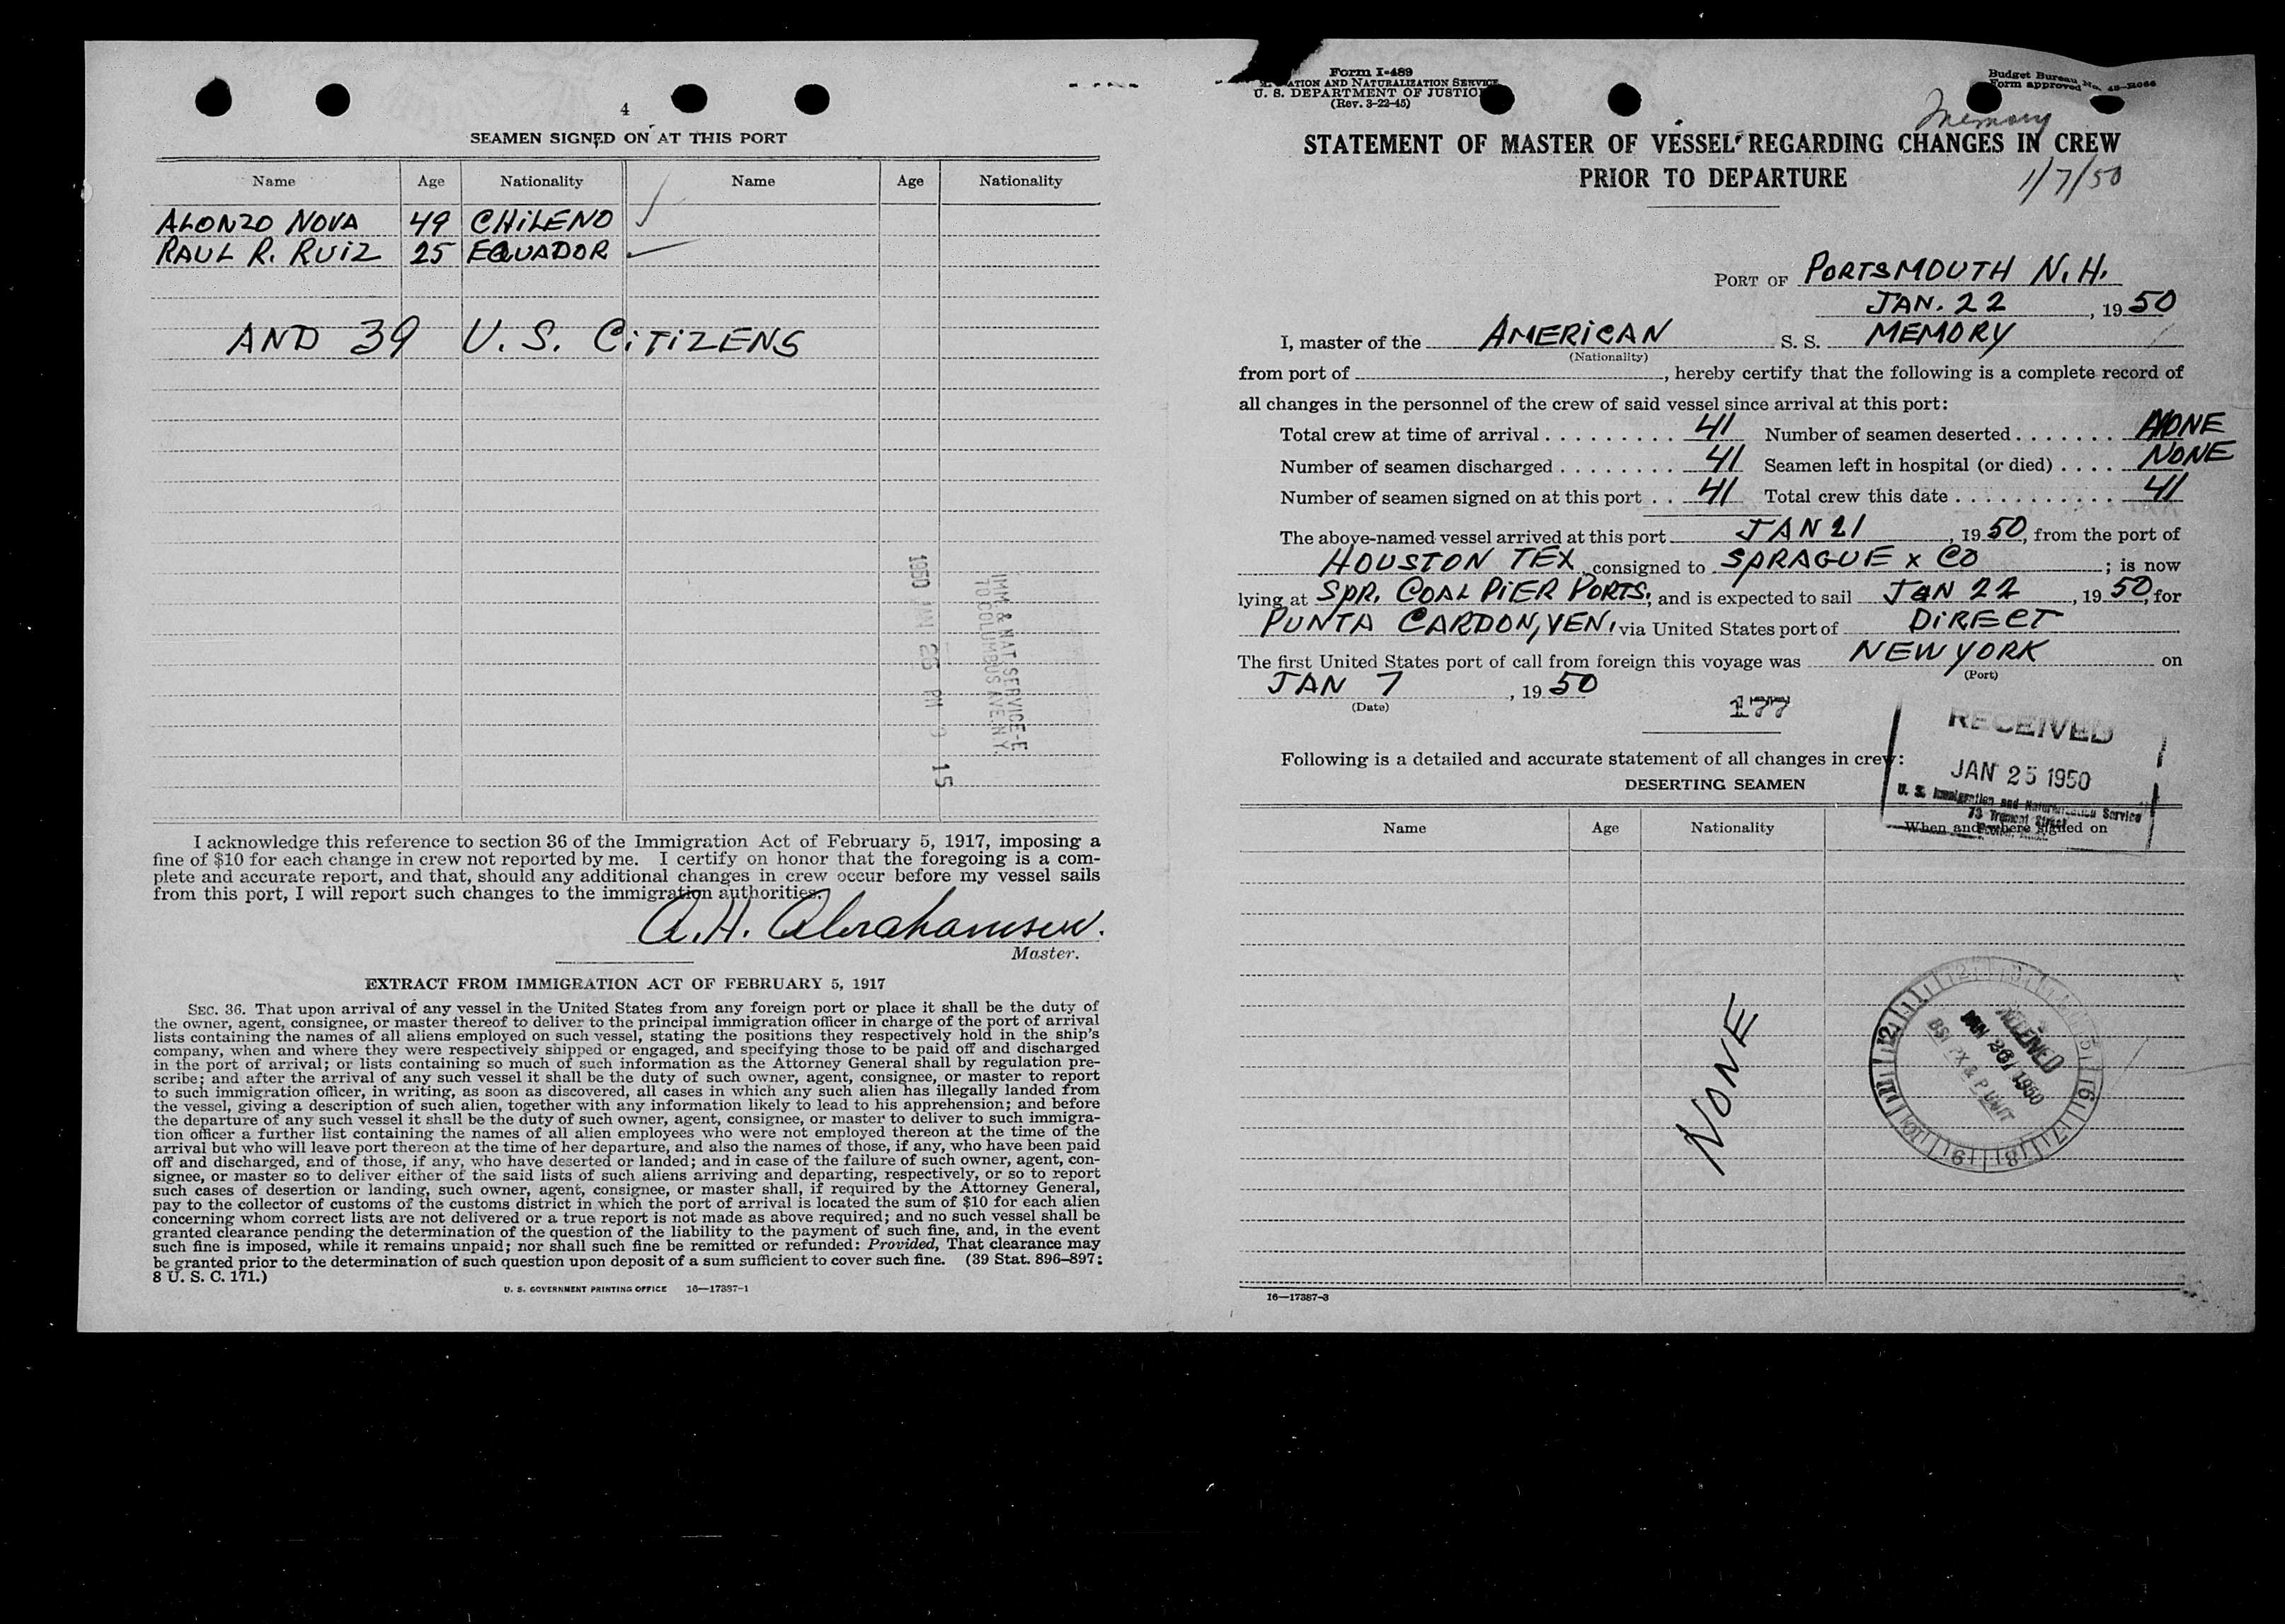 4
SEAMEN SIGNED ON AT THIS PORT
Name Age Nationality Name Age Nationality
ALONZO NOVA 49 CHILENO
RAUL R. RUIZ 25 EQUADOR
AND 39 U. S. CITIZENS
IMM. & NAT. SERVICE-E
70 COLUMBUS AVE. N.Y.
1950 JAN 26 PM 9 15
I acknowledge this reference to section 36 of the Immigration Act of February 5, 1917, imposing a
fine of $10 for each change in crew not reported by me. I certify on honor that the foregoing is a com-
plete and accurate report, and that, should any additional changes in crew occur before my vessel sails
from this port, I will report such changes to the immigration authorities.
A. H. Abrahamsen.
Master.
EXTRACT FROM IMMIGRATION ACT OF FEBRUARY 5, 1917
SEC. 36. That upon arrival of any vessel in the United States from any foreign port or place it shall be the duty of
the owner, agent, consignee, or master thereof to deliver to the principal immigration officer in charge of the port of arrival
lists containing the names of all aliens employed on such vessel, stating the positions they respectively hold in the ship's
company, when and where they were respectively shipped or engaged, and specifying those to be paid off and discharged
in the port of arrival; or lists containing so much of such information as the Attorney General shall by regulation pre-
scribe; and after the arrival of any such vessel it shall be the duty of such owner, agent, consignee, or master to report
to such immigration officer, in writing, as soon as discovered, all cases in which any such alien has illegally landed from
the vessel, giving a description of such alien, together with any information likely to lead to his apprehension; and before
the departure of any such vessel it shall be the duty of such owner, agent, consignee, or master to deliver to such immigra-
tion officer a further list containing the names of all alien employees who were not employed thereon at the time of the
arrival but who will leave port thereon at the time of her departure, and also the names of those, if any, who have been paid
off and discharged, and of those, if any, who have deserted or landed; and in case of the failure of such owner, agent, con-
signee, or master so to deliver either of the said lists of such aliens arriving and departing, respectively, or so to report
such cases of desertion or landing, such owner, agent, consignee, or master shall, if required by the Attorney General,
pay to the collector of customs of the customs district in which the port of arrival is located the sum of $10 for each alien
concerning whom correct lists are not delivered or a true report is not made as above required; and no such vessel shall be
granted clearance pending the determination of the question of the liability to the payment of such fine, and, in the event
such fine is imposed, while it remains unpaid; nor shall such fine be remitted or refunded: Provided, That clearance may
be granted prior to the determination of such question upon deposit of a sum sufficient to cover such fine. (39 Stat. 896–897;
8 U. S. C. 171.)
U. S. GOVERNMENT PRINTING OFFICE 16—17387-1
Form I-489
ATION AND NATURALIZATION SERVICE
U. S. DEPARTMENT OF JUSTICE
(Rev. 3-22-45)
Budget Bureau No. 43-R066
Form approved
Memory
STATEMENT OF MASTER OF VESSEL REGARDING CHANGES IN CREW
PRIOR TO DEPARTURE
1/7/50
PORT OF PORTSMOUTH N.H.
JAN. 22, 1950
I, master of the AMERICAN S. S. MEMORY
(Nationality)
from port of , hereby certify that the following is a complete record of
all changes in the personnel of the crew of said vessel since arrival at this port:
Total crew at time of arrival 41 Number of seamen deserted NONE
Number of seamen discharged 41 Seamen left in hospital (or died) NONE
Number of seamen signed on at this port 41 Total crew this date 41
The above-named vessel arrived at this port JAN 21, 1950, from the port of
HOUSTON TEX, consigned to SPRAGUE x CO; is now
lying at SPR. COAL PIER PORTS; and is expected to sail JAN 22, 1950, for
PUNTA CARDON, VEN. via United States port of DIRECT
The first United States port of call from foreign this voyage was NEW YORK on
(Port)
JAN 7, 1950
(Date)
177
RECEIVED
JAN 25 1950
U. S. Immigration and Naturalization Service
73 Tremont Street
Following is a detailed and accurate statement of all changes in crew:
DESERTING SEAMEN
Name Age Nationality When and where signed on
NONE
RECEIVED
JAN 26 1950
BSI EX & P UNIT
16—17387-3